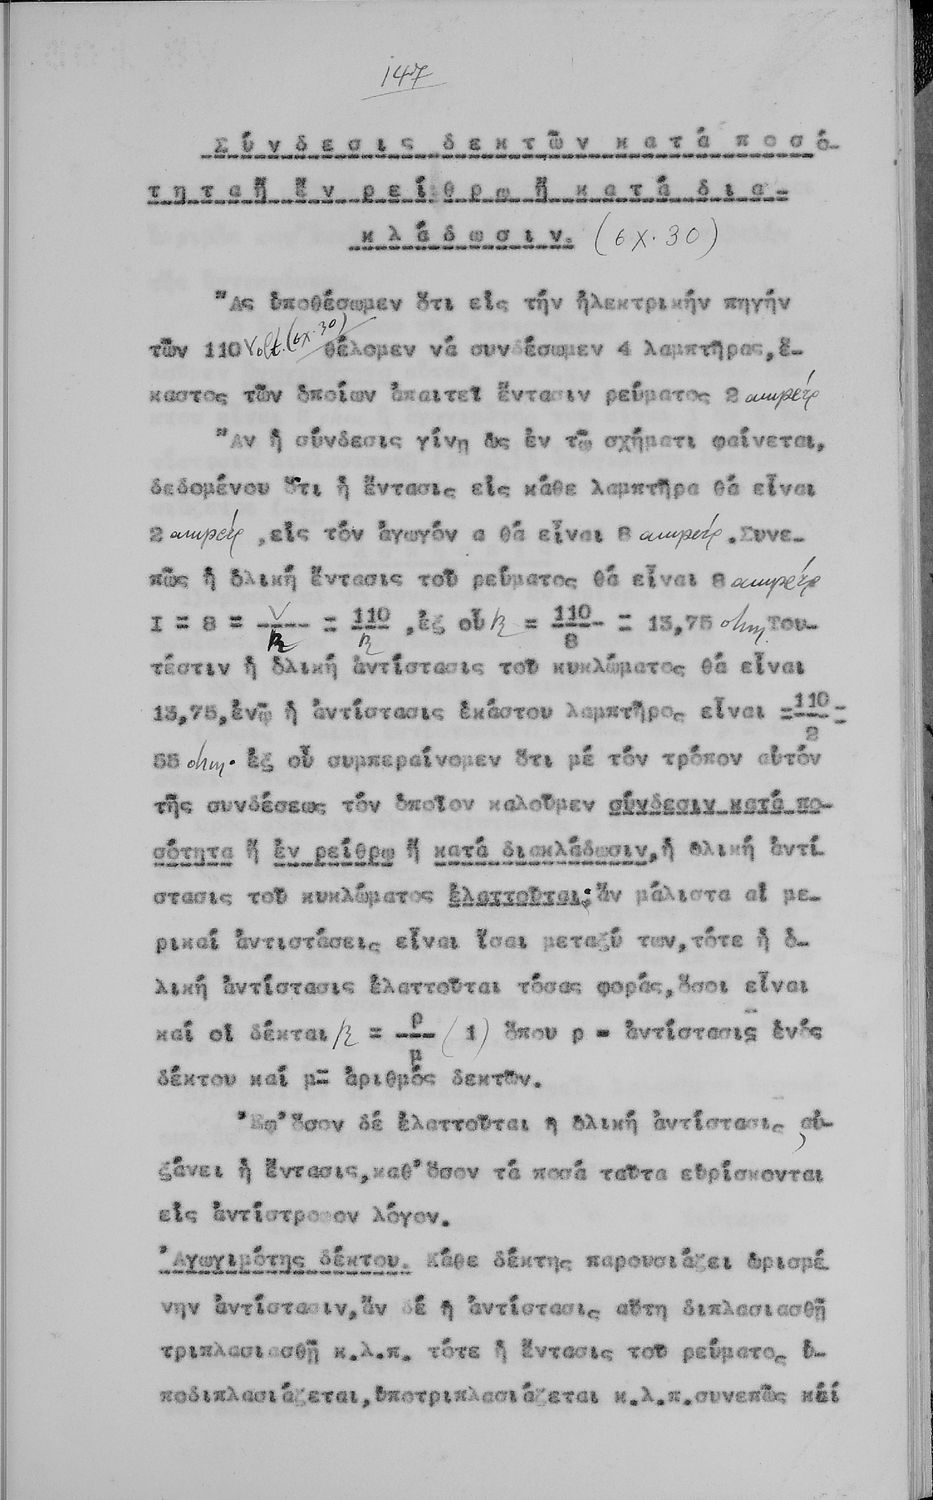 147
Σύνδεσις δεκτῶν κατά ποσό-
τητα ἤ ἐν ρείθρῳ ἤ κατά δια-
κλάδωσιν. (σχ. 30)
Ἄς ὑποθέσωμεν ὅτι εἰς τήν ἠλεκτρικήν πηγήν
τῶν 110 Volt.(σχ. 30) θέλομεν νά συνδέσωμεν 4 λαμπτῆρας, ἕ-
καστος τῶν ὁποίων ἀπαιτεῖ ἔντασιν ρεύματος 2 αμπέρ
Ἄν ἡ σύνδεσις γίνῃ ὡς ἐν τῷ σχήματι φαίνεται,
δεδομένου ὅτι ἡ ἔντασις εἰς κάθε λαμπτῆρα θά εἶναι
2 αμπέρ, εἰς τόν ἀγωγόν α θά εἶναι 8 αμπέρ. Συνε-
πῶς ἡ ὁλική ἔντασις τοῦ ρεύματος θά εἶναι 8 αμπέρ
I = 8 = V/R = 110/R , ἐξ οὗ R = 110/8 = 13,75 ohm. Του-
τέστιν ἡ ὁλική ἀντίστασις τοῦ κυκλώματος θά εἶναι
13,75, ἐνῷ ἡ ἀντίστασις ἑκάστου λαμπτῆρος εἶναι = 110/2 =
55 ohm. ἐξ οὗ συμπεραίνομεν ὅτι μέ τόν τρόπον αὐτόν
τῆς συνδέσεως τόν ὁποῖον καλοῦμεν σύνδεσιν κατά πο-
σότητα ἤ ἐν ρείθρῳ ἤ κατά διακλάδωσιν, ἡ ὁλική ἀντί-
στασις τοῦ κυκλώματος ἐλαττοῦται; ἄν μάλιστα αἱ με-
ρικαί ἀντιστάσεις εἶναι ἴσαι μεταξύ των, τότε ἡ ὁ-
λική ἀντίστασις ἐλαττοῦται τόσας φοράς, ὅσοι εἶναι
καί οἱ δέκται R = ρ/μ (1) ὅπου ρ = ἀντίστασις ἑνός
δέκτου καί μ= ἀριθμός δεκτῶν.
Ἐφ' ὅσον δέ ἐλαττοῦται ἡ ὁλική ἀντίστασις, αὐ-
ξάνει ἡ ἔντασις, καθ' ὅσον τά ποσά ταῦτα εὑρίσκονται
εἰς ἀντίστροφον λόγον.
Ἀγωγιμότης δέκτου. Κάθε δέκτης παρουσιάζει ὡρισμέ
νην ἀντίστασιν, ἄν δέ ἡ ἀντίστασις αὕτη διπλασιασθῇ
τριπλασιασθῇ κ.λ.π. τότε ἡ ἔντασις τοῦ ρεύματος ὑ-
ποδιπλασιάζεται, ὑποτριπλασιάζεται κ.λ.π. συνεπῶς καί